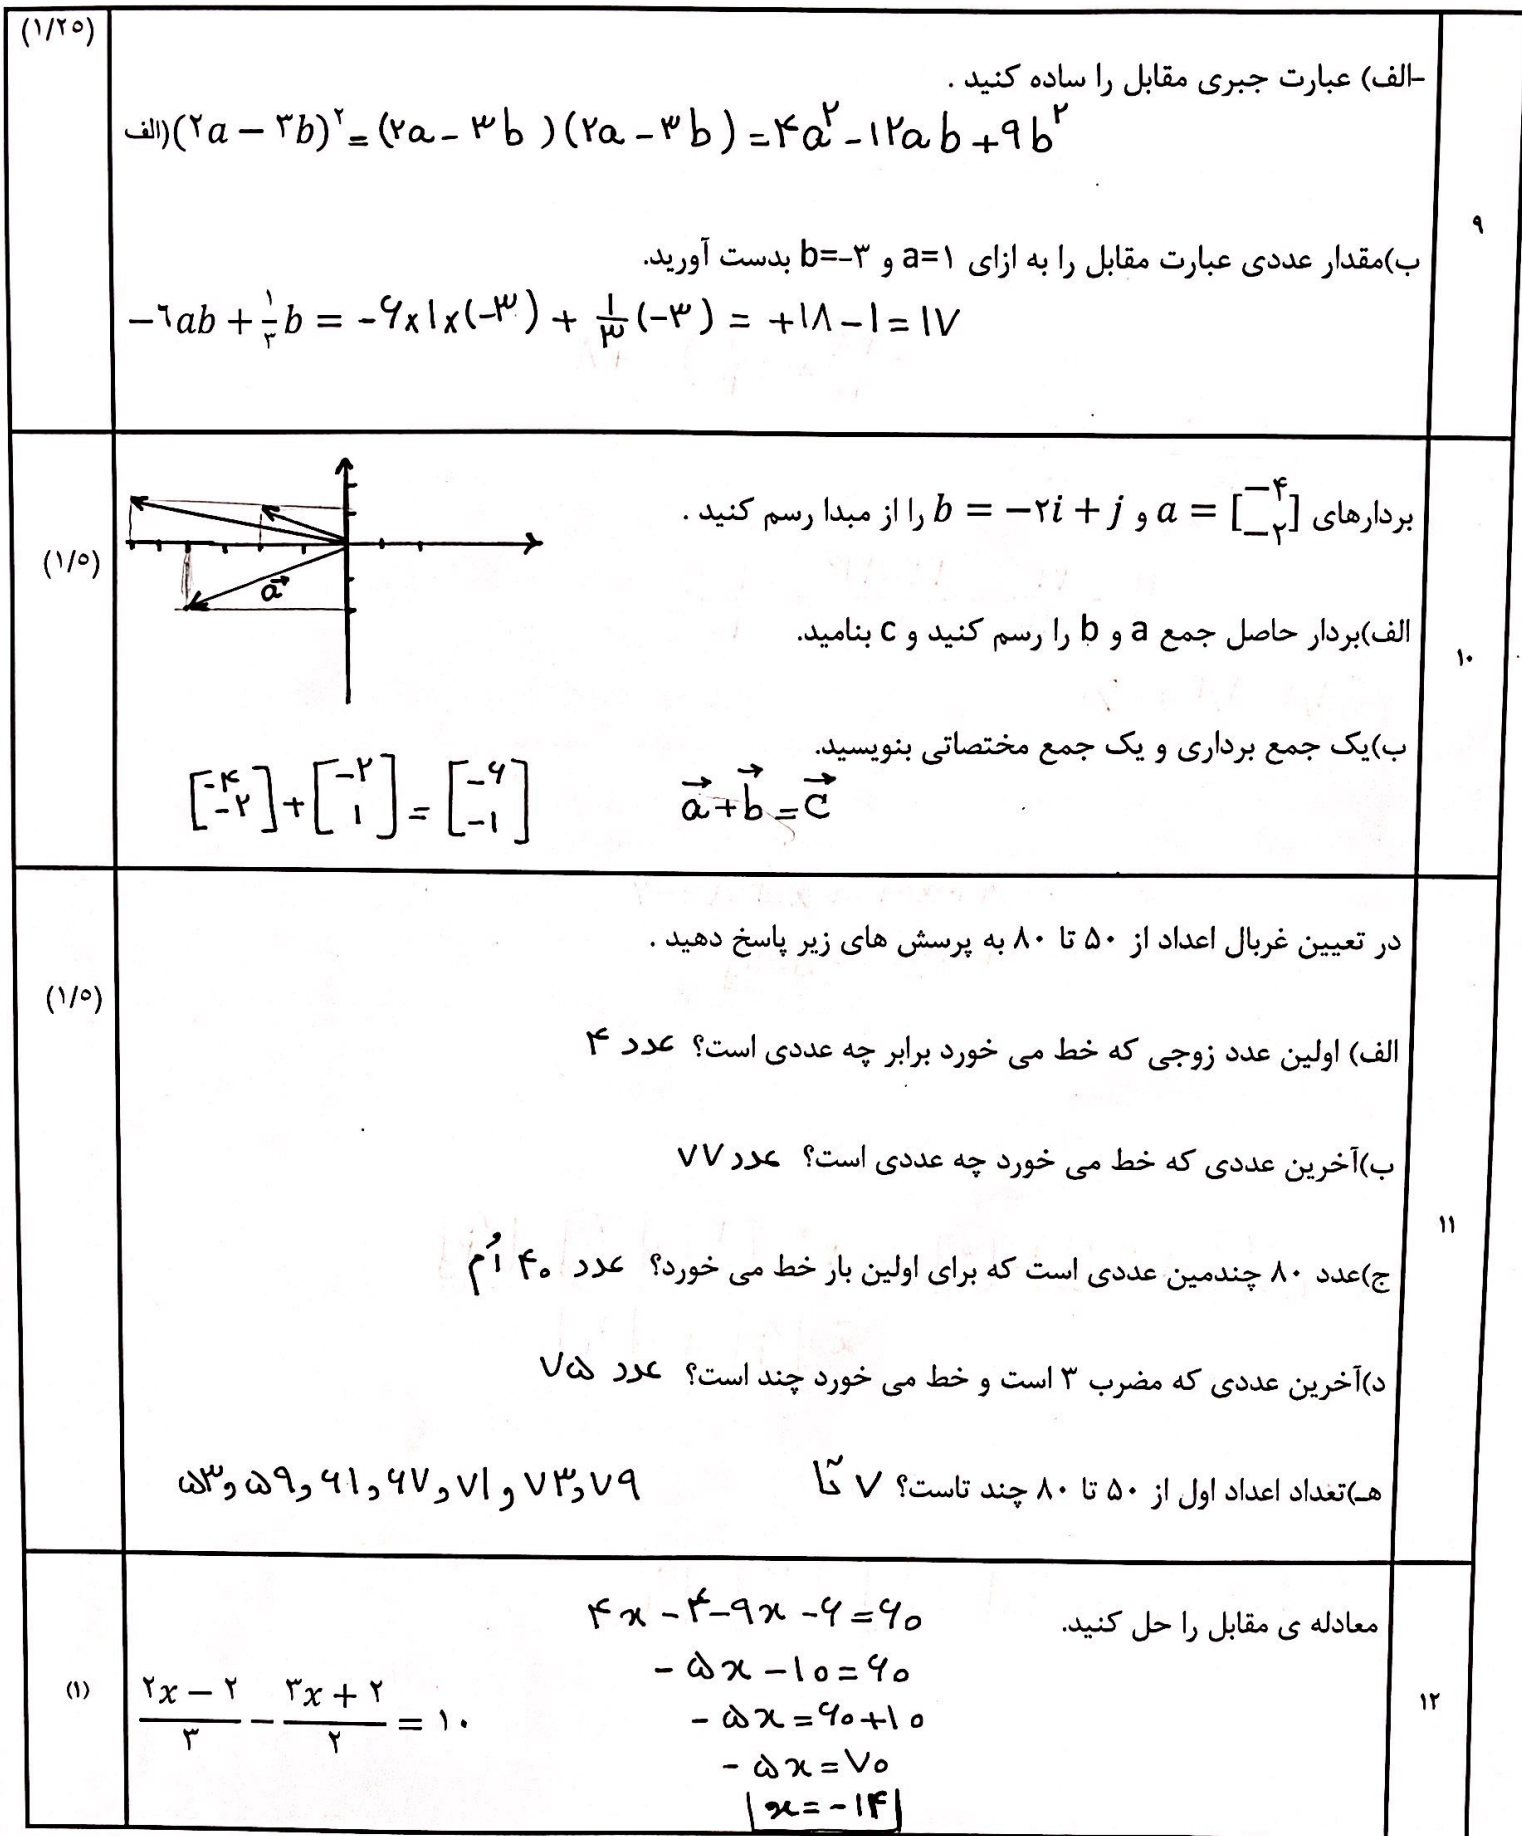 (۱/۲۵)
-الف) عبارت جبری مقابل را ساده کنید .
الف)(۲a − ۳b)^۲ = (۲a − ۳b)(۲a − ۳b) = ۴a^۲ − ۱۲ab + ۹b^۲
۹
ب)مقدار عددی عبارت مقابل را به ازای a=۱ و b=−۳ بدست آورید.
−٦ab + ۱/۳ b = −۶×۱×(−۳) + ۱/۳ (−۳) = +۱۸ − ۱ = ۱۷
بردارهای a = [−۴ −۲] و b = −۲i + j را از مبدا رسم کنید .
(۱/۵)
a
الف)بردار حاصل جمع a و b را رسم کنید و c بنامید.
۱۰
ب)یک جمع برداری و یک جمع مختصاتی بنویسید.
[−۴ −۲] + [−۲ ۱] = [−۶ −۱]    a + b = c
در تعیین غربال اعداد از ۵۰ تا ۸۰ به پرسش های زیر پاسخ دهید .
(۱/۵)
الف) اولین عدد زوجی که خط می خورد برابر چه عددی است؟ عدد ۴
ب)آخرین عددی که خط می خورد چه عددی است؟ عدد ۷۷
۱۱
ج)عدد ۸۰ چندمین عددی است که برای اولین بار خط می خورد؟ عدد ۴۰ اُم
د)آخرین عددی که مضرب ۳ است و خط می خورد چند است؟ عدد ۷۵
هـ)تعداد اعداد اول از ۵۰ تا ۸۰ چند تاست؟ ۷ تا    ۵۳ و ۵۹ و ۶۱ و ۶۷ و ۷۱ و ۷۳ و ۷۹
معادله ی مقابل را حل کنید.
۱۲
(۱)
(۲x − ۲)/۳ − (۳x + ۲)/۲ = ۱۰
۴x − ۴ − ۹x − ۶ = ۶۰
− ۵x − ۱۰ = ۶۰
− ۵x = ۶۰ + ۱۰
− ۵x = ۷۰
x = −۱۴